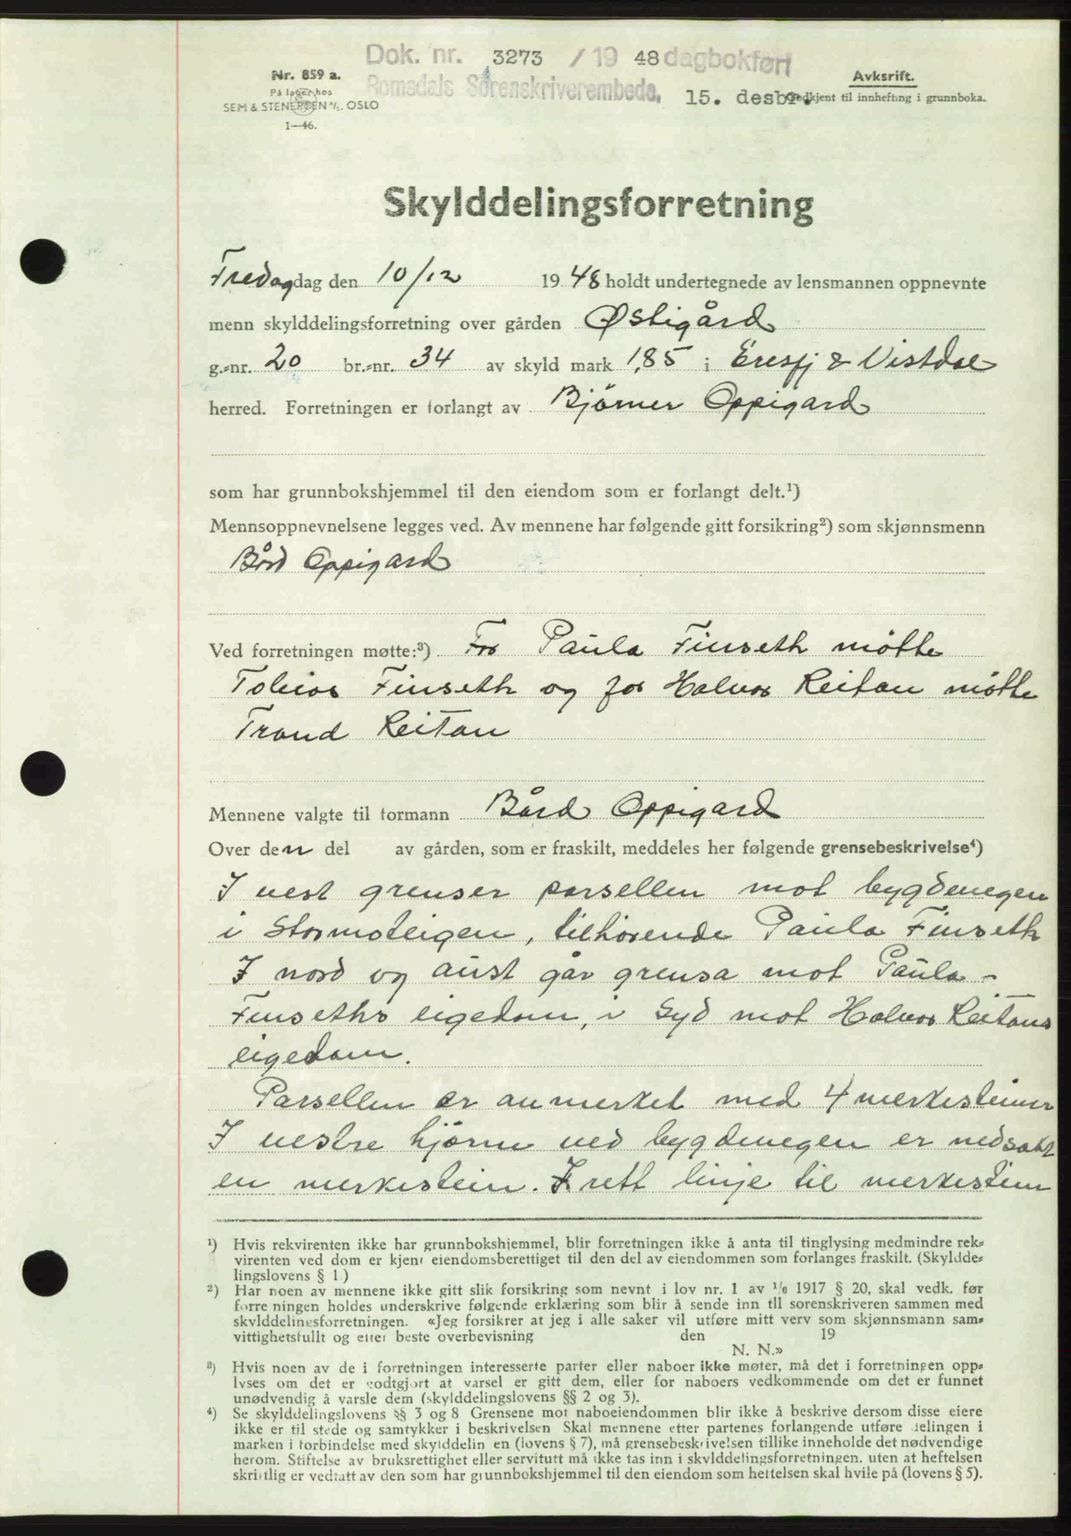 Dok. nr. 3273 / 19 48 dagbokført
Nr. 859 a.
Avksrift.
På lager hos
Romsdals Sorenskriverembede, 15. desbr. Godkjent til innhefting i grunnboka.
SEM & STENERSEN A/S. OSLO
1—46.
Skylddelingsforretning
Fredag dag den 10/12 19 48 holdt undertegnede av lensmannen oppnevnte
menn skylddelingsforretning over gården Østigård
g.-nr. 20 br.-nr. 34 av skyld mark 1,85 i Eresfj & Vistdal
herred. Forretningen er forlangt av Bjørner Oppigard
som har grunnbokshjemmel til den eiendom som er forlangt delt.¹)
Mennsoppnevnelsene legges ved. Av mennene har følgende gitt forsikring²) som skjønnsmenn
Bård Oppigard
Ved forretningen møtte:³) For Paula Finseth møtte
Tobias Finseth og for Halvor Reitan møtte
Trond Reitan
Mennene valgte til formann Bård Oppigard
Over den del av gården, som er fraskilt, meddeles her følgende grensebeskrivelse⁴)
I vest grenser parsellen mot bygdevegen
i Stormoteigen, tilhørende Paula Finseth
I nord og aust går grensa mot Paula
Finseths eigedom, i Syd mot Halvor Reitans
eigedom.
Parsellen er anmerket med 4 merkesteiner
I vestre hjørne ved bygdevegen er nedsatt
en merkestein. I rett linje til merkestein
¹) Hvis rekvirenten ikke har grunnbokshjemmel, blir forretningen ikke å anta til tinglysing medmindre rek-
virenten ved dom er kjent eiendomsberettiget til den del av eiendommen som forlanges fraskilt. (Skyldde-
lingslovens § 1)
²) Har noen av mennene ikke gitt slik forsikring som nevnt i lov nr. 1 av 1/6 1917 § 20, skal vedk. før
forretningen holdes underskrive følgende erklæring som blir å sende inn til sorenskriveren sammen med
skylddelingsforretningen. «Jeg forsikrer at jeg i alle saker vil utføre mitt verv som skjønnsmann sam-
vittighetsfullt og etter beste overbevisning den 19
N. N.»
³) Hvis noen av de i forretningen interesserte parter eller naboer ikke møter, må det i forretningen opp-
lyses om det er godtgjort at varsel er gitt dem, eller for naboers vedkommende om det er funnet
unødvendig å varsle dem (skylddelingslovens §§ 2 og 3).
⁴) Se skylddelingslovens §§ 3 og 8 Grensene mot naboeiendommen blir ikke å beskrive dersom disse eiere
ikke er til stede og samtykker i beskrivelsen Skal mennene etter partenes forlangende utføre delingen i
marken i forbindelse med skylddelingen (lovens § 7), må grensebeskrivelsen tillike inneholde det nødvendige
herom. Stiftelse av bruksrettighet eller servitutt må ikke tas inn i skylddelingsforretningen, uten at heftelsen
skriftlig er vedtatt av den som har grunnbokshjemmel til den eiendom som heftelsen skal hvile på (lovens § 5).